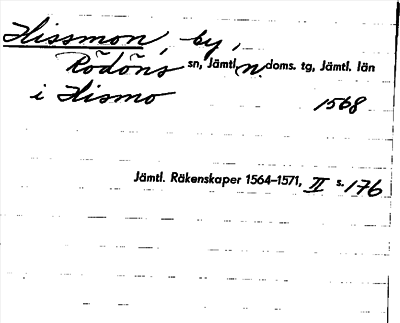 Hissmon, by,
Rödöns sn, Jämtl. n. doms. tg, Jämtl. län
i Hismo 1568
Jämtl. Räkenskaper 1564–1571, II s. 176